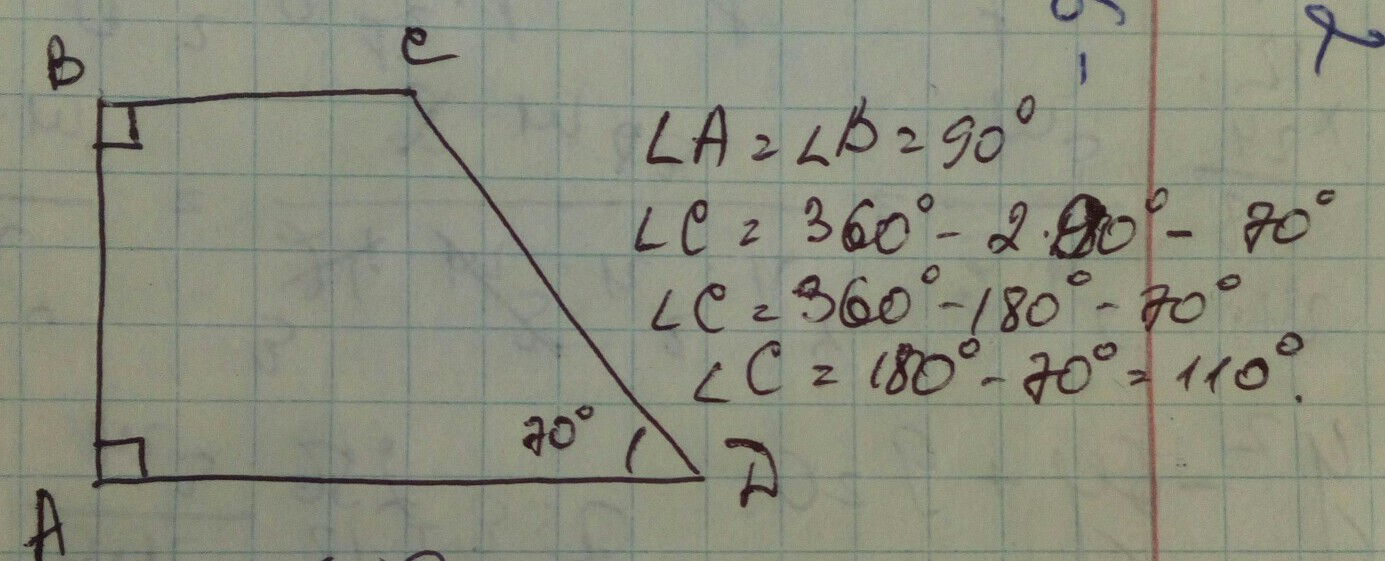 B
C
∠A = ∠B = 90°
∠C = 360° - 2·90° - 70°
∠C = 360° - 180° - 70°
∠C = 180° - 70° = 110°.
70°
D
A